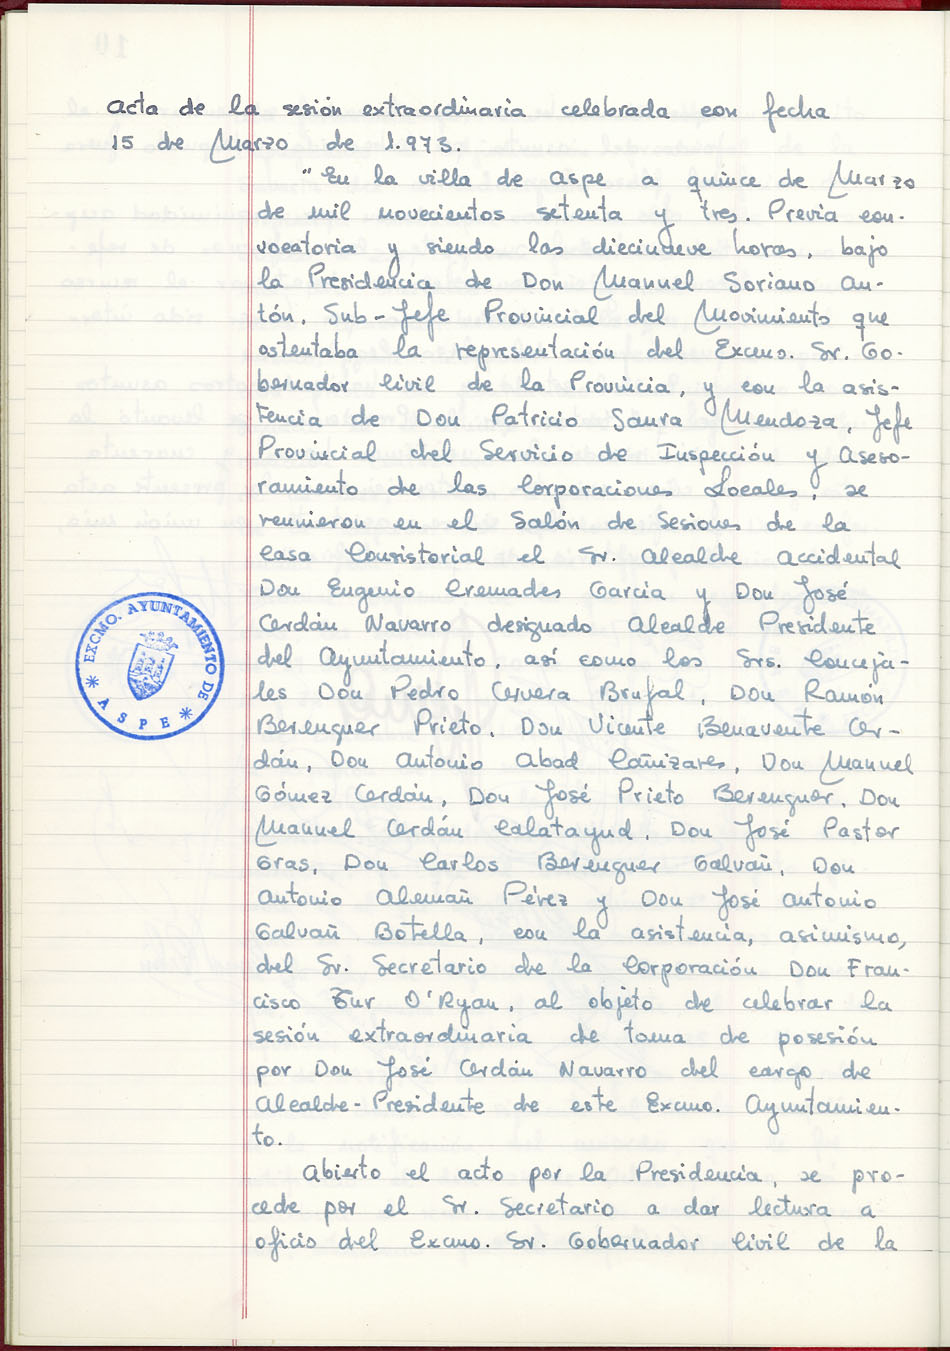 Acta de la sesión extraordinaria celebrada con fecha
15 de Marzo de 1.973.
"En la villa de Aspe a quince de Marzo
de mil novecientos setenta y tres. Previa con-
vocatoria y siendo las diecinueve horas, bajo
la Presidencia de Don Manuel Soriano An-
tón, Sub-Jefe Provincial del Movimiento que
ostentaba la representación del Excmo. Sr. Go-
bernador Civil de la Provincia, y con la asis-
tencia de Don Patricio Saura Mendoza, Jefe
Provincial del Servicio de Inspección y Aseso-
ramiento de las Corporaciones Locales, se
reunieron en el Salón de Sesiones de la
Casa Consistorial el Sr. Alcalde Accidental
Don Eugenio Cremades García y Don José
Cerdán Navarro designado Alcalde Presidente
del Ayuntamiento, así como los Srs. Conceja-
les Don Pedro Cervera Brufal, Don Ramón
Berenguer Prieto, Don Vicente Benavente Cer-
dán, Don Antonio Abad Cañizares, Don Manuel
Gómez Cerdán, Don José Prieto Berenguer, Don
Manuel Cerdán Calatayud, Don José Pastor
Gras, Don Carlos Berenguer Galvañ, Don
Antonio Alemañ Pérez y Don José Antonio
Galvañ Botella, con la asistencia, asimismo,
del Sr. Secretario de la Corporación Don Fran-
cisco Tur O'Ryan, al objeto de celebrar la
sesión extraordinaria de toma de posesión
por Don José Cerdán Navarro del cargo de
Alcalde-Presidente de este Excmo. Ayuntamien-
to.
Abierto el acto por la Presidencia, se pro-
cede por el Sr. Secretario a dar lectura a
oficio del Excmo. Sr. Gobernador Civil de la
* EXCMO. AYUNTAMIENTO DE *
ASPE